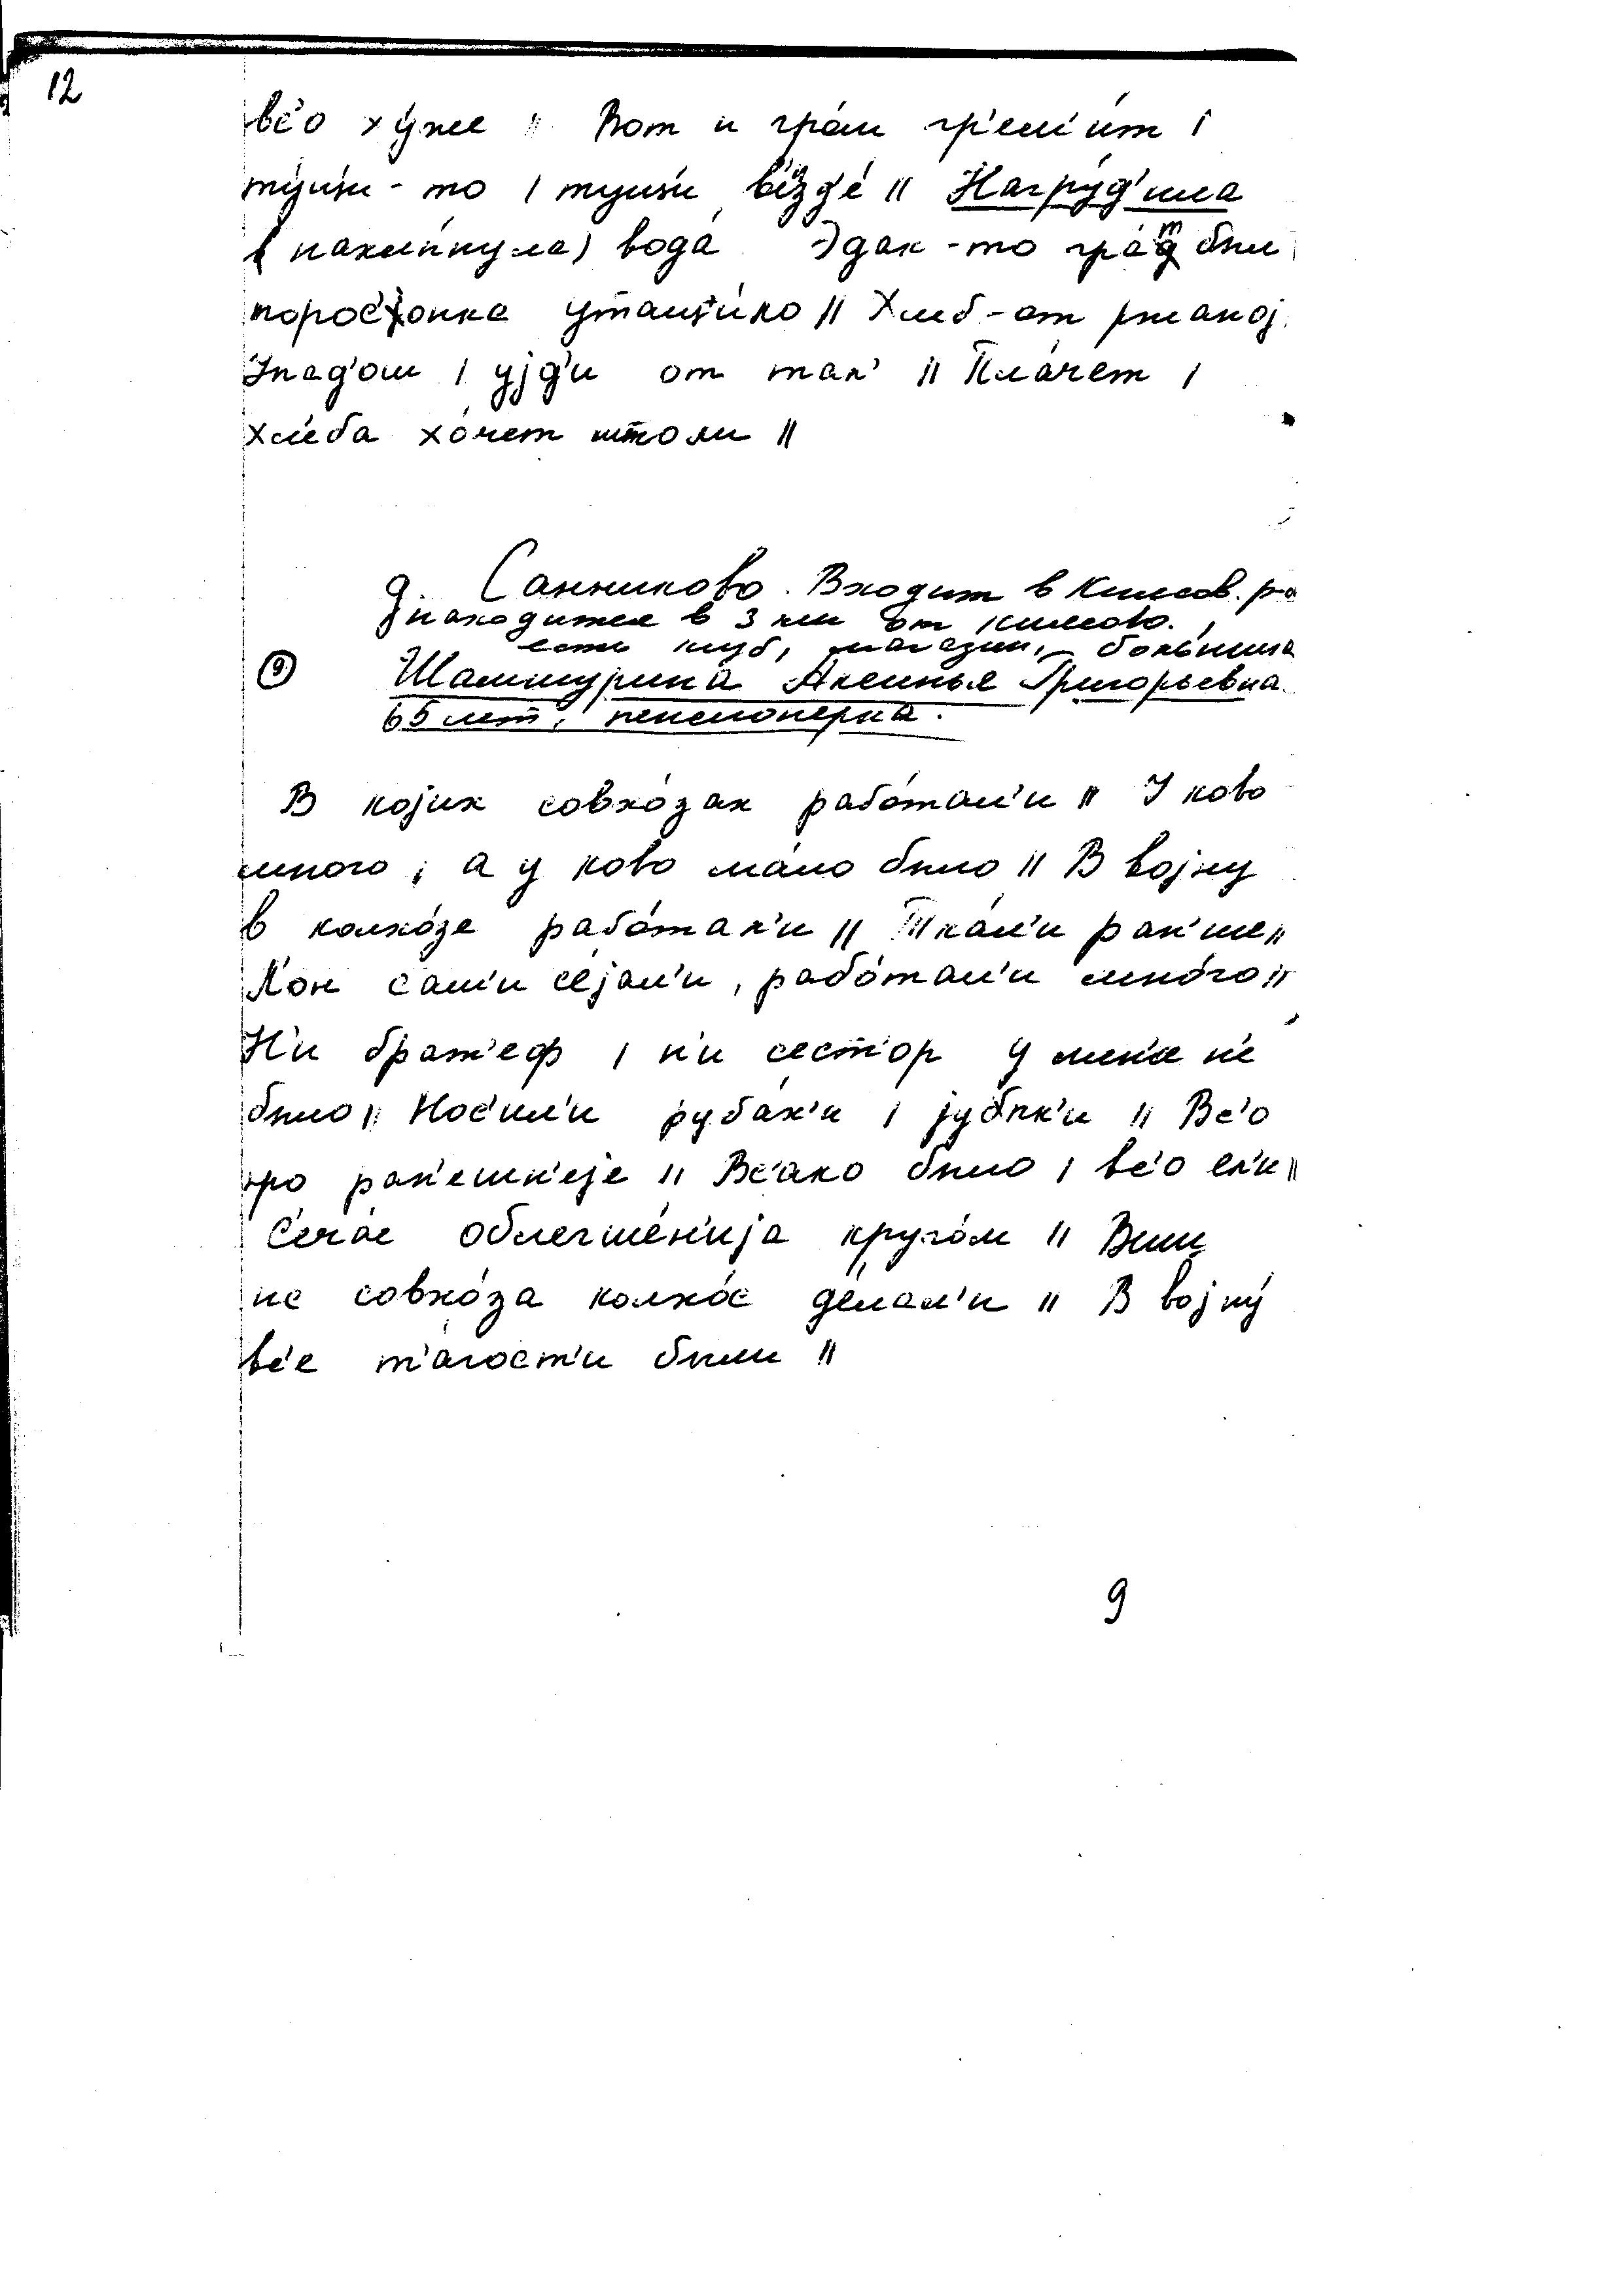 12
вс'о ху́же // Вот и гром гр'еми́т /
ту́ч'и-то / туч'и в'езд'е́ // Нагру́д'ила
(нахлы́нула) вода́ Эдак-то гра́т был
порос'онка утащи́ло // Хлеб-от ржаној
Упад'ош / уjд'и от так' // Пла́чет /
хл'еба хо́чет штоли //
д. Санниково. Входит в Климов. р-
находится в 3 км от Климово.
есть клуб, магазин, больница
9 Шаммурина Аксинья Григорьевна.
65 лет, пенсионерка.
В којих совхо́зах рабо́тал'и // У ково
много, а у ково мало было // В војну
в колхо́зе рабо́тал'и // Тка́л'и ран'ше //
Л'он сам'и с'ејал'и, рабо́тал'и мно́го //
Н'и брат'еф / н'и сест'ор у мен'а н'е
было // Нос'ил'и руба́х'и / јупк'и // Вс'о
про ран'ешн'еје // Вс'ако было / вс'о ел'и //
С'ечас облегче́н'ија круго́м // Вишь
ис совхо́за колхо́с д'е́лал'и // В војну́
вс'е т'агост'и были //
9